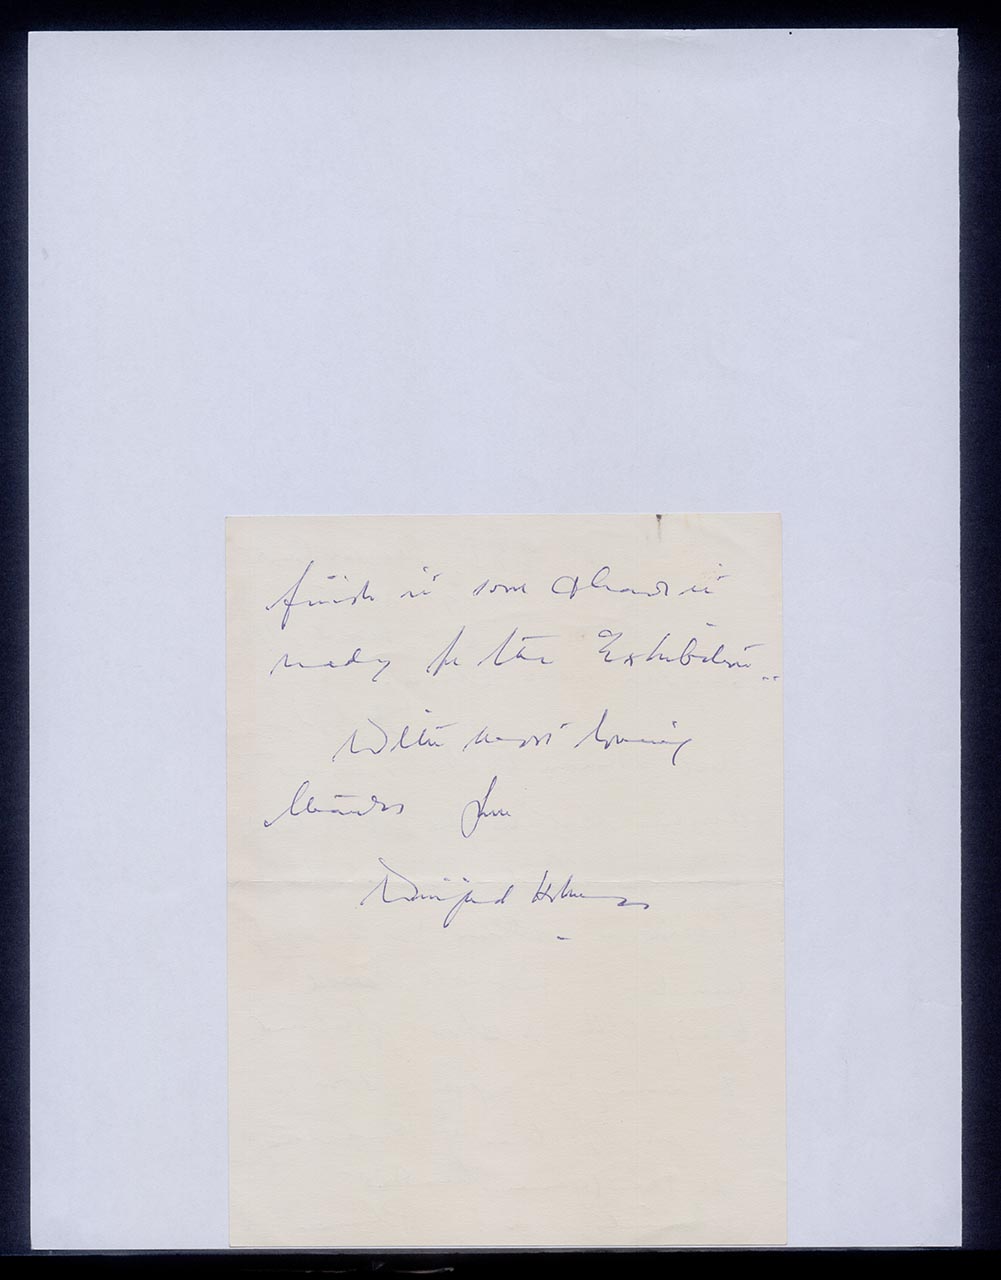 finish it soon & have it
ready for the Exhibition..
With most loving
thanks from
Winifred